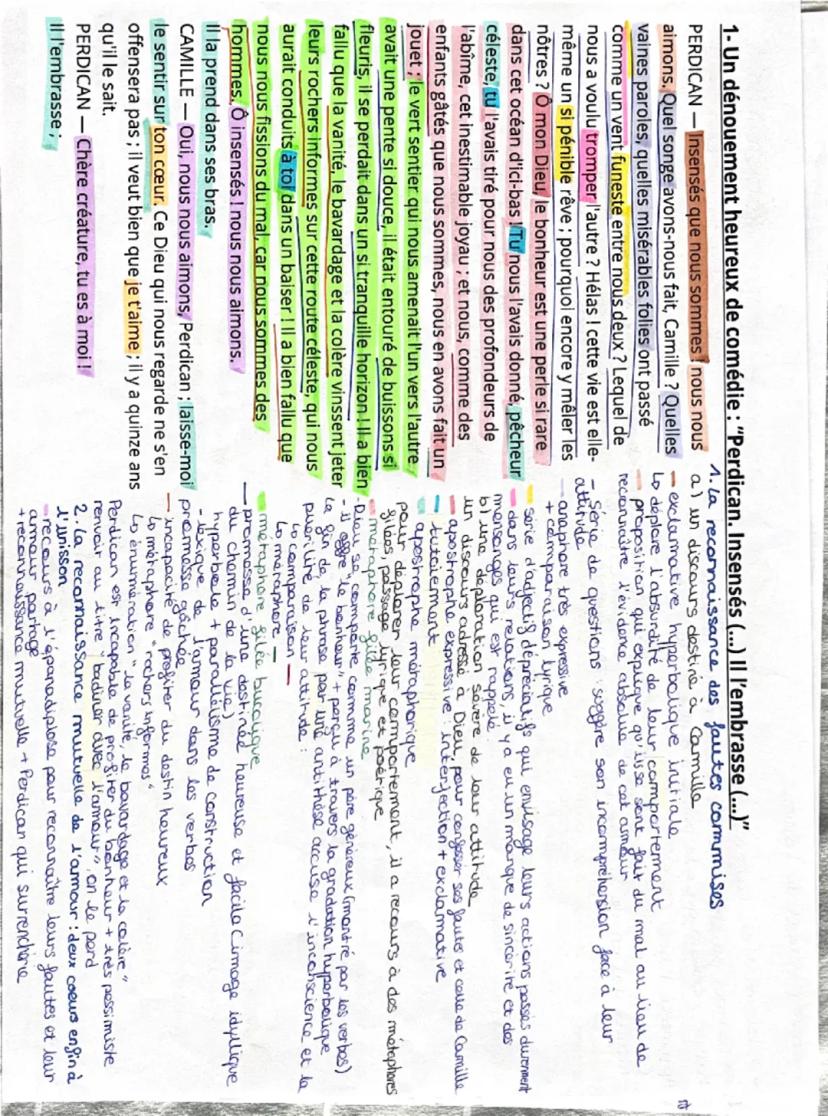 1- Un dénouement heureux de comédie : "Perdican. Insensés (...) Il l'embrasse (...)"
PERDICAN — Insensés que nous sommes ! nous nous
aimons. Quel songe avons-nous fait, Camille ? Quelles
vaines paroles, quelles misérables folies ont passé
comme un vent funeste entre nous deux ? Lequel de
nous a voulu tromper l'autre ? Hélas ! cette vie est elle-
même un si pénible rêve ; pourquoi encore y mêler les
nôtres ? Ô mon Dieu, le bonheur est une perle si rare
dans cet océan d'ici-bas ! Tu nous l'avais donné, pêcheur
céleste, tu l'avais tiré pour nous des profondeurs de
l'abîme, cet inestimable joyau ; et nous, comme des
enfants gâtés que nous sommes, nous en avons fait un
jouet ; le vert sentier qui nous amenait l'un vers l'autre
avait une pente si douce, il était entouré de buissons si
fleuris, il se perdait dans un si tranquille horizon ! Il a bien
fallu que la vanité, le bavardage et la colère vinssent jeter
leurs rochers informes sur cette route céleste, qui nous
aurait conduits à toi dans un baiser ! Il a bien fallu que
nous nous fissions du mal, car nous sommes des
hommes. Ô insensés ! nous nous aimons.
Il la prend dans ses bras.
CAMILLE — Oui, nous nous aimons, Perdican ; laisse-moi
le sentir sur ton cœur. Ce Dieu qui nous regarde ne s'en
offensera pas ; il veut bien que je t'aime ; il y a quinze ans
qu'il le sait.
PERDICAN — Chère créature, tu es à moi !
Il l'embrasse ;
1. La reconnaissance des fautes commises
a) un discours destiné à Camille
- exclamative hyperbolique initiale
↳ déplore l'absurdité de leur comportement
- proposition qui explique qu'ils se sont fait du mal au lieu de
reconnaître l'évidence absolue de cet amour
- série de questions : suggère son incompréhension face à leur
attitude
- anaphore très expressive
+ comparaison lyrique
- série d'adjectifs dépréciatifs qui envisage leurs actions passées durement
- dans leurs relations, il y a eu un manque de sincérité et des
mensonges qui est rappelé
b) une déploration sévère de leur attitude
un discours adressé à Dieu, pour confesser ses fautes et celle de Camille
- apostrophe expressive : interjection + exclamative
- tutoiement
- apostrophe métaphorique
pour déplorer leur comportement, il a recours à des métaphores
filées, passage lyrique et poétique
- métaphore filée marine
- Dieu se comporte comme un père généreux (montré par les verbes)
- il offre "le bonheur" + perçu à travers la gradation hyperbolique
la fin de la phrase par une antithèse accuse l'inconscience et la
puérilité de leur attitude :
↳ comparaison
↳ métaphore
- métaphore filée bucolique
- promesse d'une destinée heureuse et facile (image idyllique
du chemin de la vie)
hyperbole + parallélisme de construction
- lexique de l'amour dans les verbes
promesse gâchée
- incapacité de profiter du destin heureux
↳ métaphore "rochers informes"
↳ énumération "la vanité, le bavardage et la colère"
Perdican est incapable de profiter du bonheur + très pessimiste
renvoi au titre "badiner avec l'amour", on le perd
2. La reconnaissance mutuelle de l'amour : deux coeurs enfin à
l'unisson
- recours à l'épanadiplose pour reconnaître leurs fautes et leur
amour partagé
+ reconnaissance mutuelle + Perdican qui surenchérie